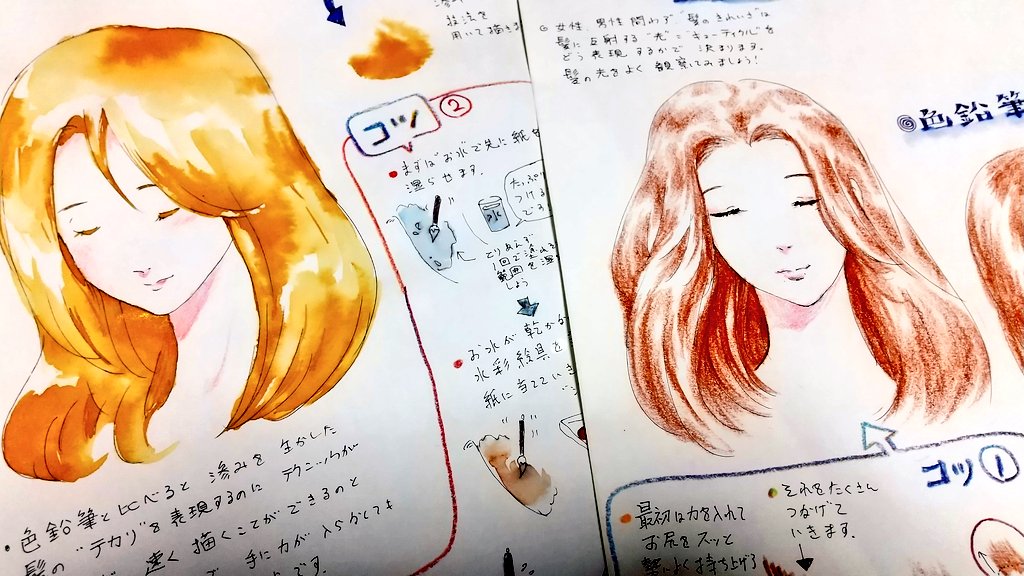 技法を
用いて描きま
コツ ②
・まずはお水で先に紙を
湿らせます。
水
たっぷり
つける
とりあえず
1回で塗れる
範囲を湿
しよう
・お水が乾かな
水彩絵具を
紙に当てていき
・色鉛筆と比べると滲みを生かした
髪の"テカリ"を表現するのにテクニックが
速く描くことができるのと
手に力が入らかしても
です。
◎女性、男性問わず"髪のきれいさ"は
髪に反射する"光"="キューティクル"を
どう表現するかで決まります。
髪の光をよく観察してみましょう!
◎色鉛筆
コツ ①
・最初は力を入れて
お尻をスッと
勢いよく持ち上げる
・それをたくさん
つなげて
いきます。